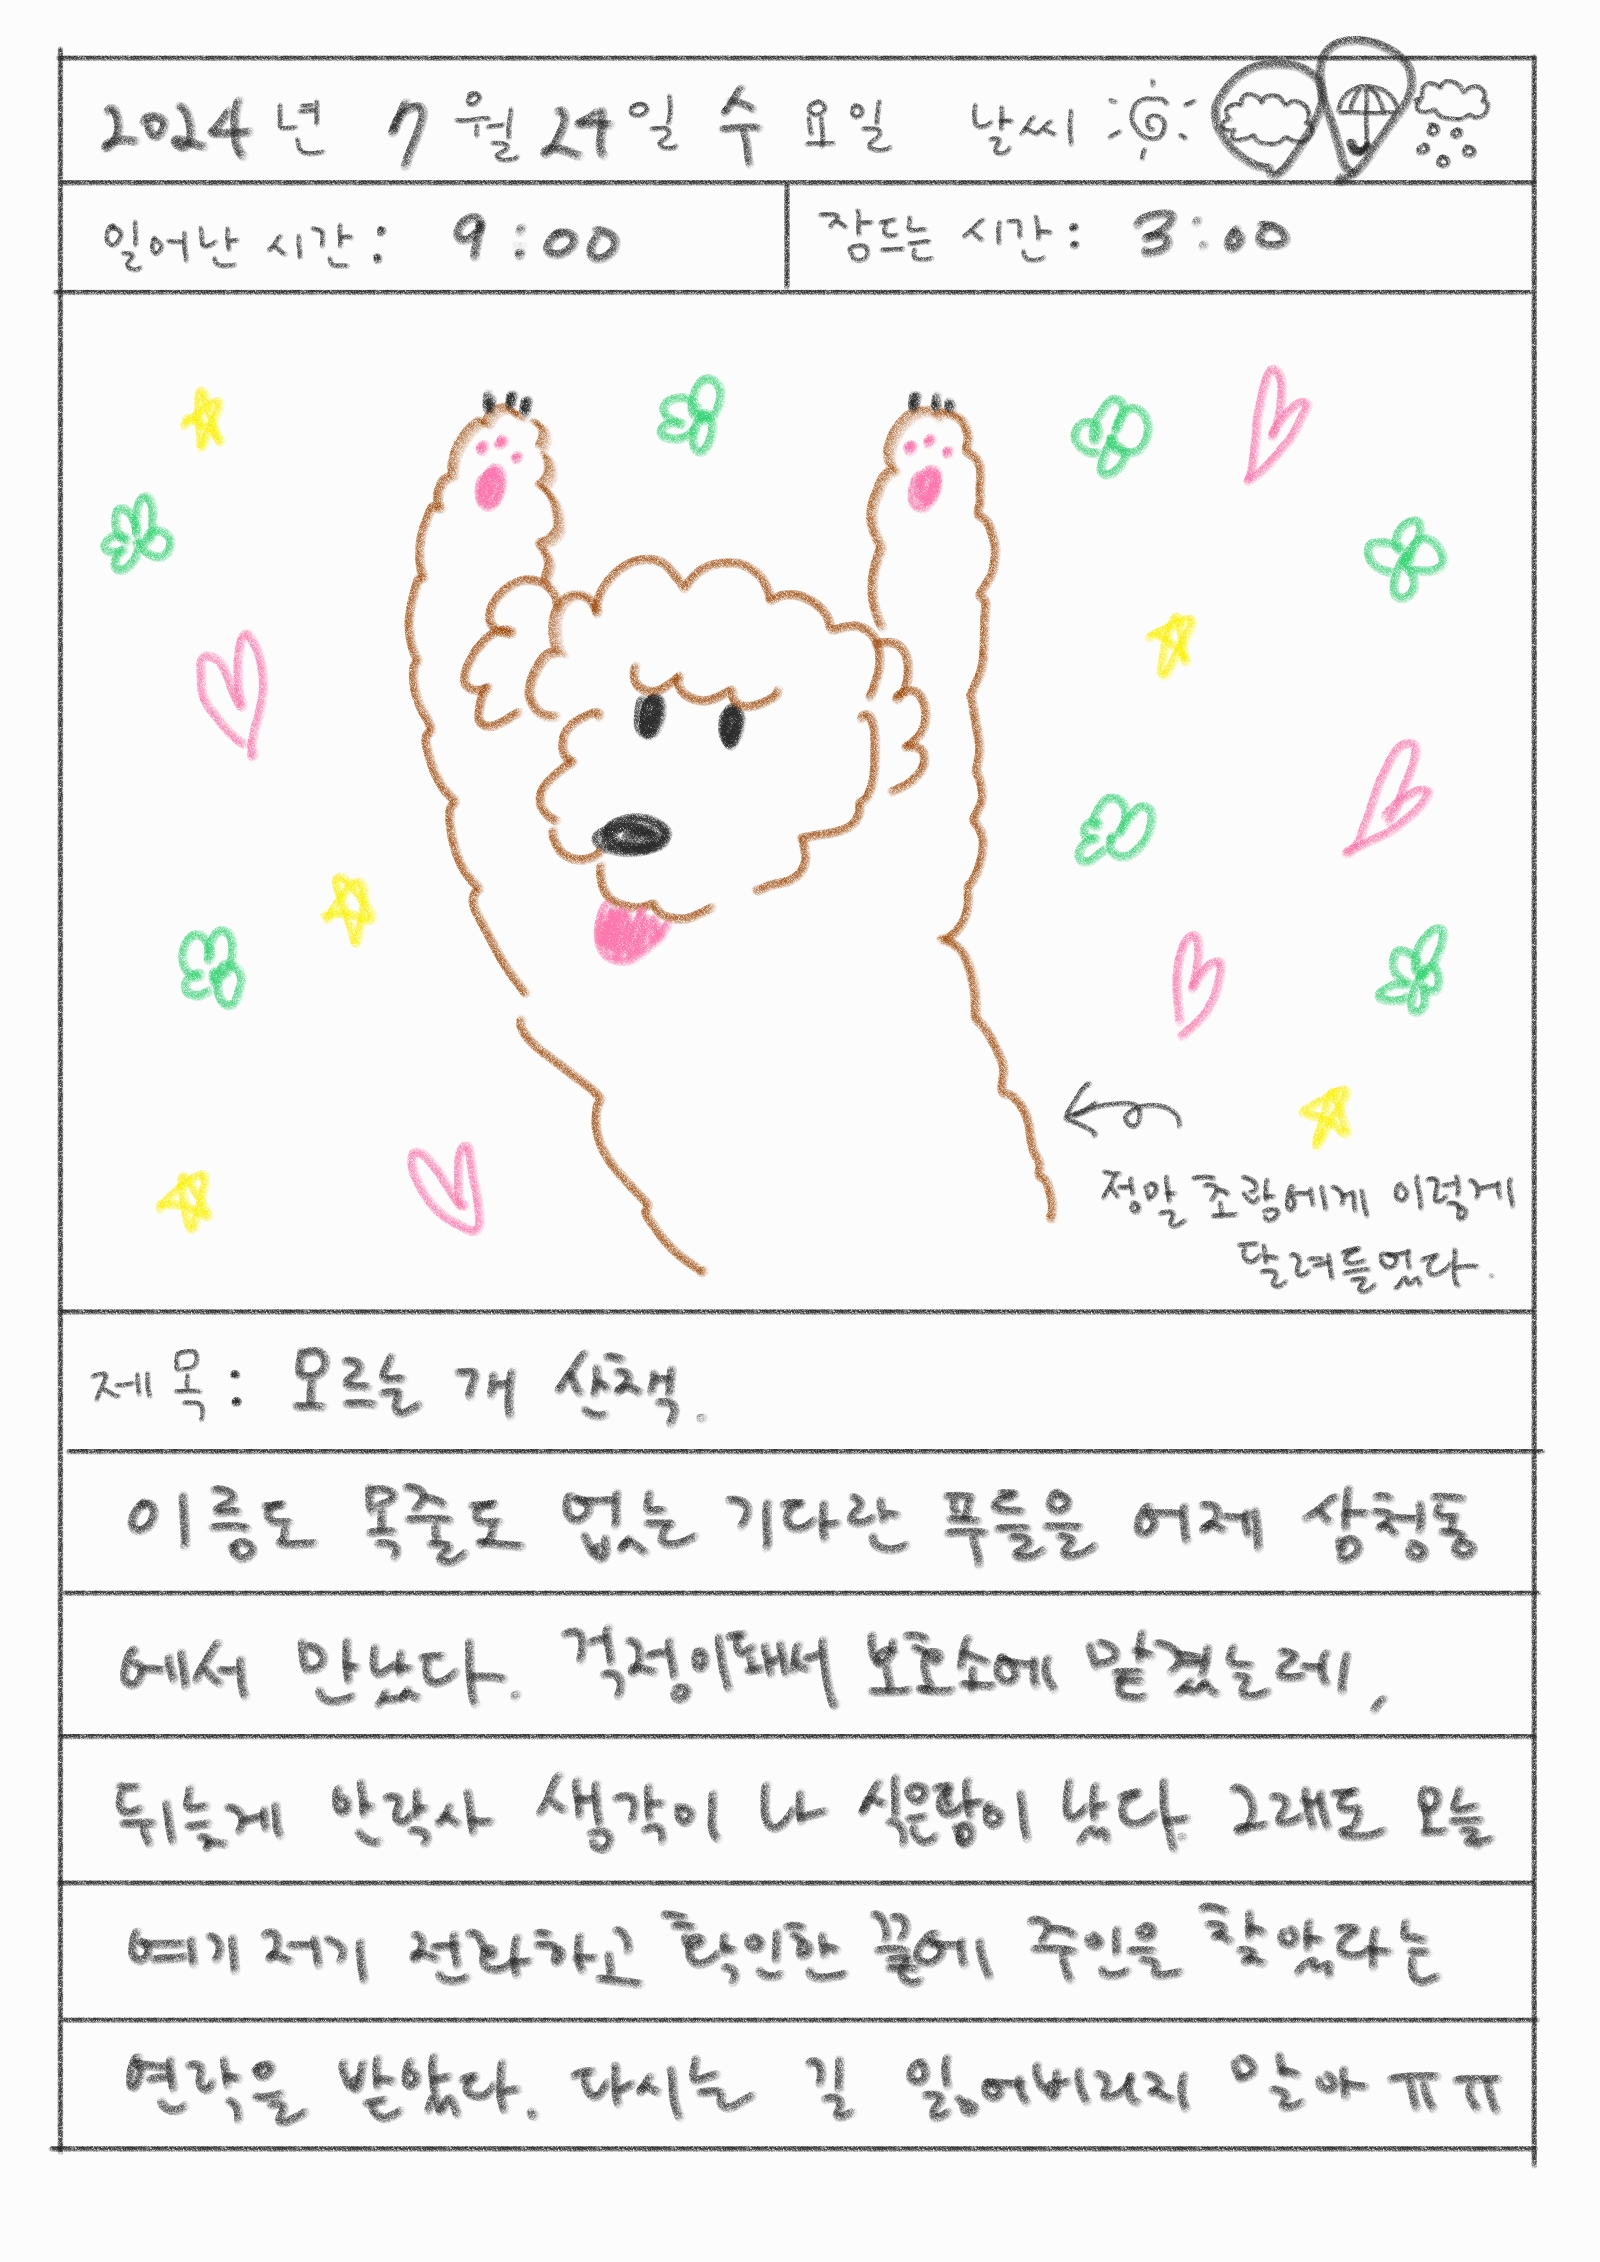 2024년 7월 24일 수요일 날씨
일어난 시간: 9:00 잠드는 시간: 3:00
정말 초람에게 이렇게
달려들었다.
제목: 모르는 개 산책.
이름도 목줄도 없는 기다란 푸들을 어제 삼청동
에서 만났다. 걱정이돼서 보호소에 맡겼는데,
뒤늦게 안락사 생각이 나 식은땀이 났다. 그래도 오늘
여기저기 전화하고 확인한 끝에 주인을 찾았다는
연락을 받았다. 다시는 길 잃어버리지 말아 ㅠㅠ